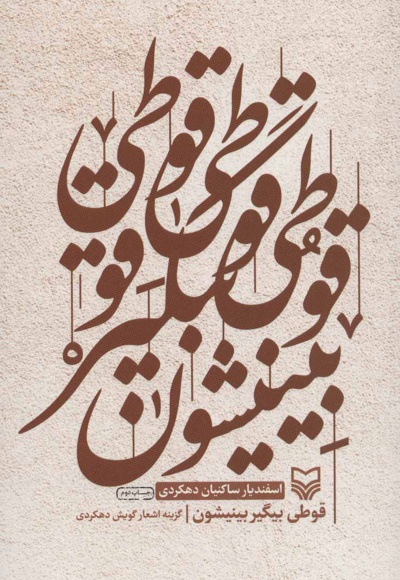 قوطی
بیگیر
بینیشون
اسفندیار ساکنیان دهکردی
چاپ دوم
قوطی بیگیر بینیشون | گزینه اشعار گویش دهکردی